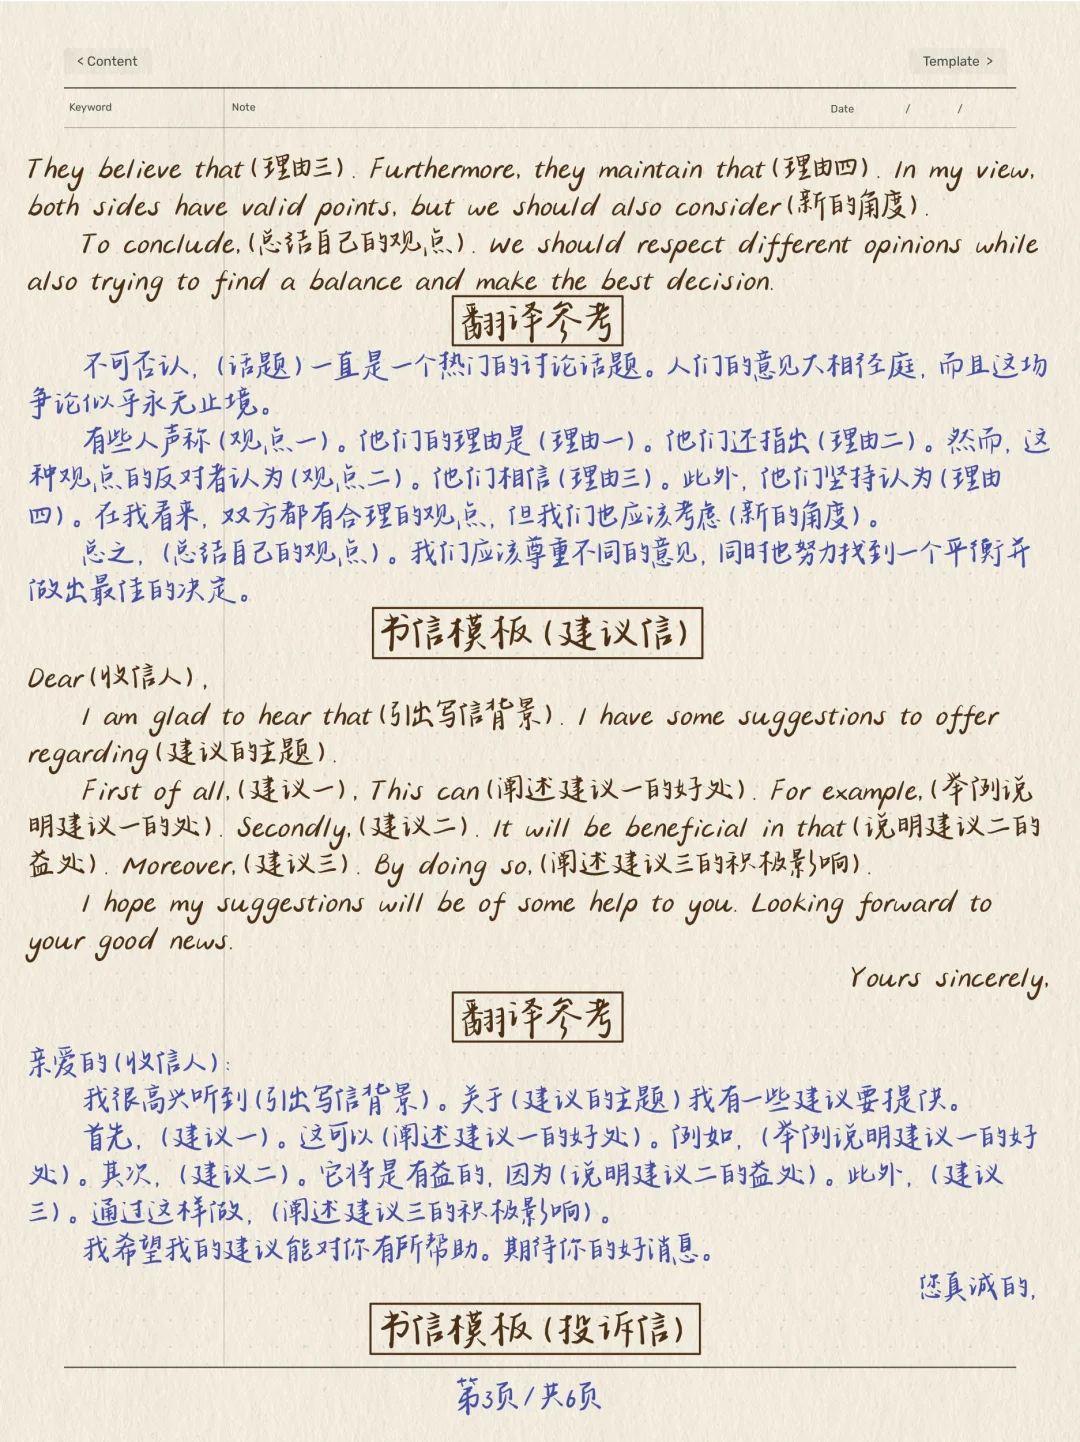 < Content
Template >
Keyword
Note
Date / /
They believe that(理由三). Furthermore, they maintain that(理由四). In my view,
both sides have valid points, but we should also consider(新的角度).
To conclude,(总结自己的观点). We should respect different opinions while
also trying to find a balance and make the best decision.
翻译参考
不可否认,(话题)一直是一个热门的讨论话题。人们的意见大相径庭,而且这场
争论似乎永无止境。
有些人声称(观点一)。他们的理由是(理由一)。他们还指出(理由二)。然而,这
种观点的反对者认为(观点二)。他们相信(理由三)。此外,他们坚持认为(理由
四)。在我看来,双方都有合理的观点,但我们也应该考虑(新的角度)。
总之,(总结自己的观点)。我们应该尊重不同的意见,同时也努力找到一个平衡并
做出最佳的决定。
书信模板(建议信)
Dear(收信人),
I am glad to hear that(引出写信背景). I have some suggestions to offer
regarding(建议的主题).
First of all,(建议一), This can(阐述建议一的好处). For example,(举例说
明建议一的处). Secondly,(建议二). It will be beneficial in that(说明建议二的
益处). Moreover,(建议三). By doing so,(阐述建议三的积极影响).
I hope my suggestions will be of some help to you. Looking forward to
your good news.
Yours sincerely,
翻译参考
亲爱的(收信人):
我很高兴听到(引出写信背景)。关于(建议的主题)我有一些建议要提供。
首先,(建议一)。这可以(阐述建议一的好处)。例如,(举例说明建议一的好
处)。其次,(建议二)。它将是有益的,因为(说明建议二的益处)。此外,(建议
三)。通过这样做,(阐述建议三的积极影响)。
我希望我的建议能对你有所帮助。期待你的好消息。
您真诚的,
书信模板(投诉信)
第3页/共6页